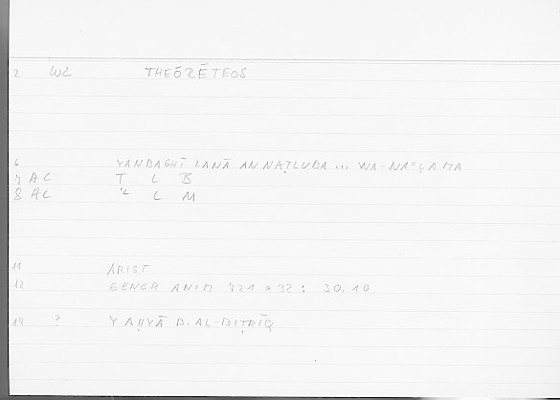 2 WZ THEŌRĒTEOS
6 YANBAGHĪ LANĀ AN NAṬLUBA ... WA-NAʿLAMA
7 AC Ṭ L B
8 AC ʿ L M
11 ARIST
12 GENER ANIM 721 a 32 : 30.10
14 ? YAḤYĀ B. AL-BIṬRĪQ